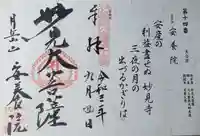 第十四番
安養院
安産の
利益尽せぬ妙見寺
三夜の月の
出づるかぎりは
奉拝
令和三年
九月四日
妙見大菩薩
月真山
安養院